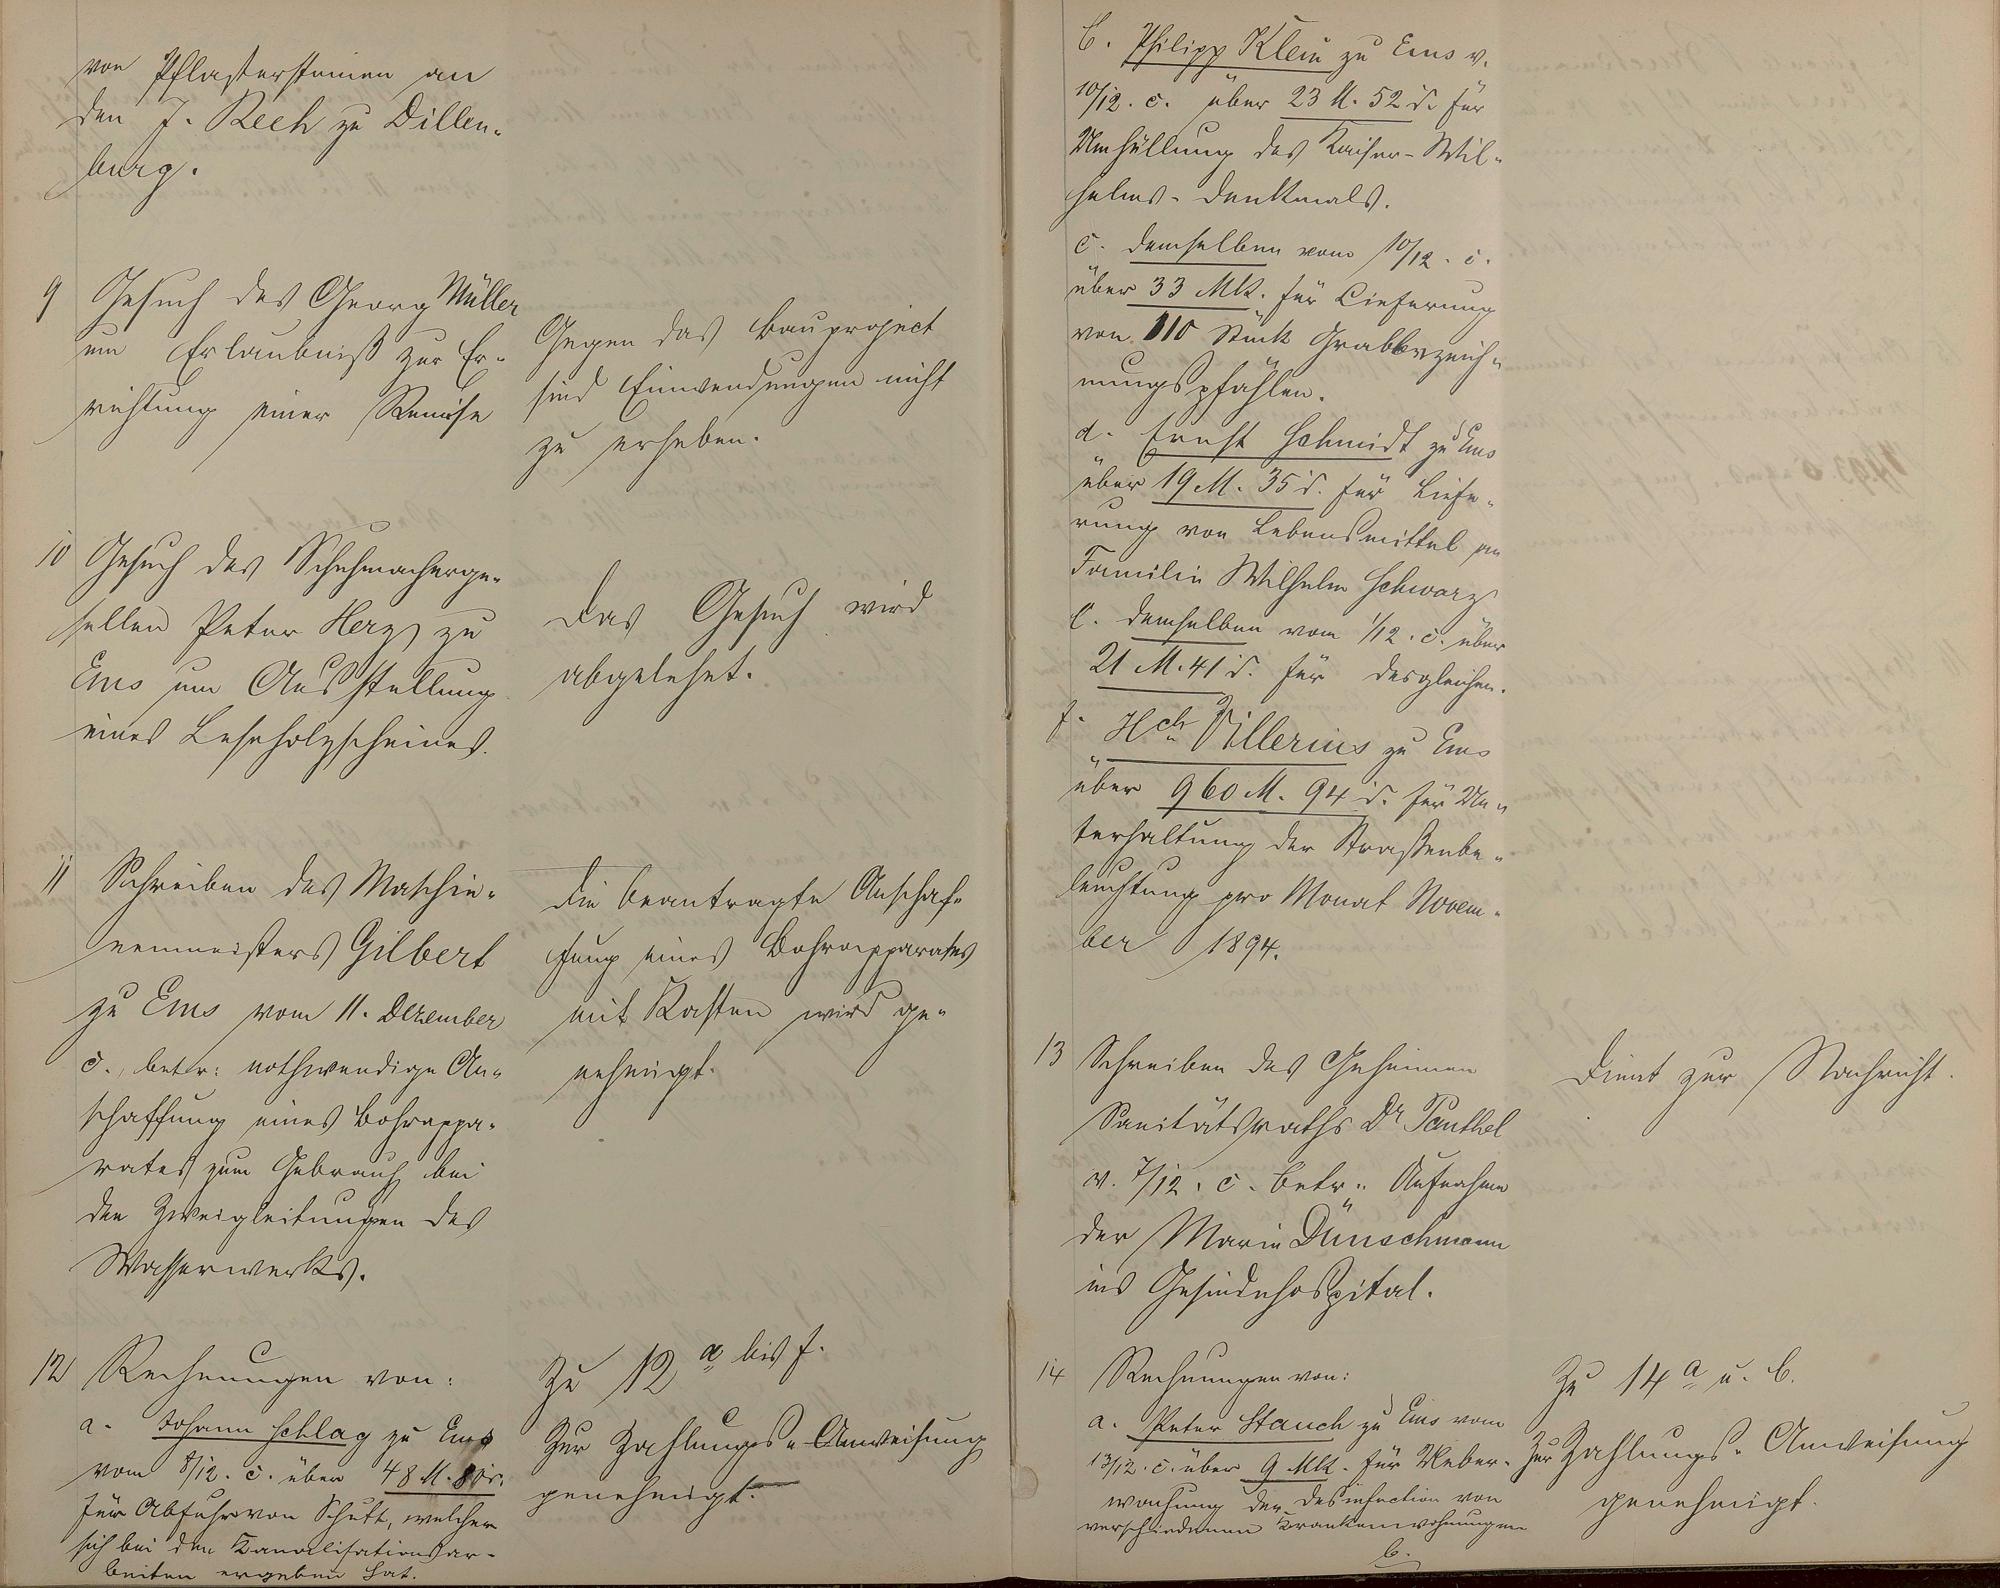 von Pflastersteinen an
den J. Rech zu Dillen-
burg.
9 Gesuch des Georg Müller
um Erlaubniß zur Er-
richtung einer Remise
Gegen das Bauproject
sind Einwendungen nicht
zu erheben.
10 Gesuch des Schuhmacherge-
sellen Peter Herz zu
Ems um Ausstellung
eines Leseholzscheines.
Das Gesuch wird
abgelehnt.
11 Schreiben des Maschin-
nenmeisters Gilbert
zu Ems vom 11. Dezember
c., betr: nothwendige An-
schaffung eines Bohrappa-
rates zum Gebrauch bei
den Zweigleitungen des
Wasserwerks.
Die beantragte Anschaf-
fung eines Bohrapparates
mit Kasten wird ge-
nehmigt.
12 Rechnungen von:
a. Johann Schlag zu Ems
vom 8/12. c. über 48 M. 80 d.
für Abfuhr von Schutt, welcher
sich bei den Kanalisationsar-
beiten ergeben hat.
Zu 12 a bis f.
Zur Zahlungs-Anweisung
genehmigt.
b. Philipp Klein zu Ems v.
10/12. c. über 23 M. 52 d. für
Umhüllung des Kaiser-Wil-
helms-Denkmals.
c. demselben vom 10/12. c.
über 33 Mk. für Lieferung
von 110 Stück Grabbezeich-
nungspfählen.
d. Ernst Schmidt zu Ems
über 19 M. 35 d. für Liefe-
rung von Lebensmittel an
Familie Wilhelm Schwarz
e. demselben vom 1/12. c. über
21 M. 41 d. für desgleichen.
f. Hch Villerius zu Ems
über 960 M. 94 d. für Un-
terhaltung der Straßenbe-
leuchtung pro Monat Novem-
ber 1894.
13 Schreiben des Geheimen
Sanitätsraths Dr Panthel
v. 7/12. c. betr: Aufnahme
der Marie Dünschmann
ins Gesindehospital.
Dient zur Nachricht.
14 Rechnungen von:
a. Peter Stauch zu Ems vom
13/12. c. über 9 Mk. für Ueber-
wachung der Desinfection von
verschiedenen Krankenwohnungen
b.
Zu 14 a u. b.
Zur Zahlungs-Anweisung
genehmigt.